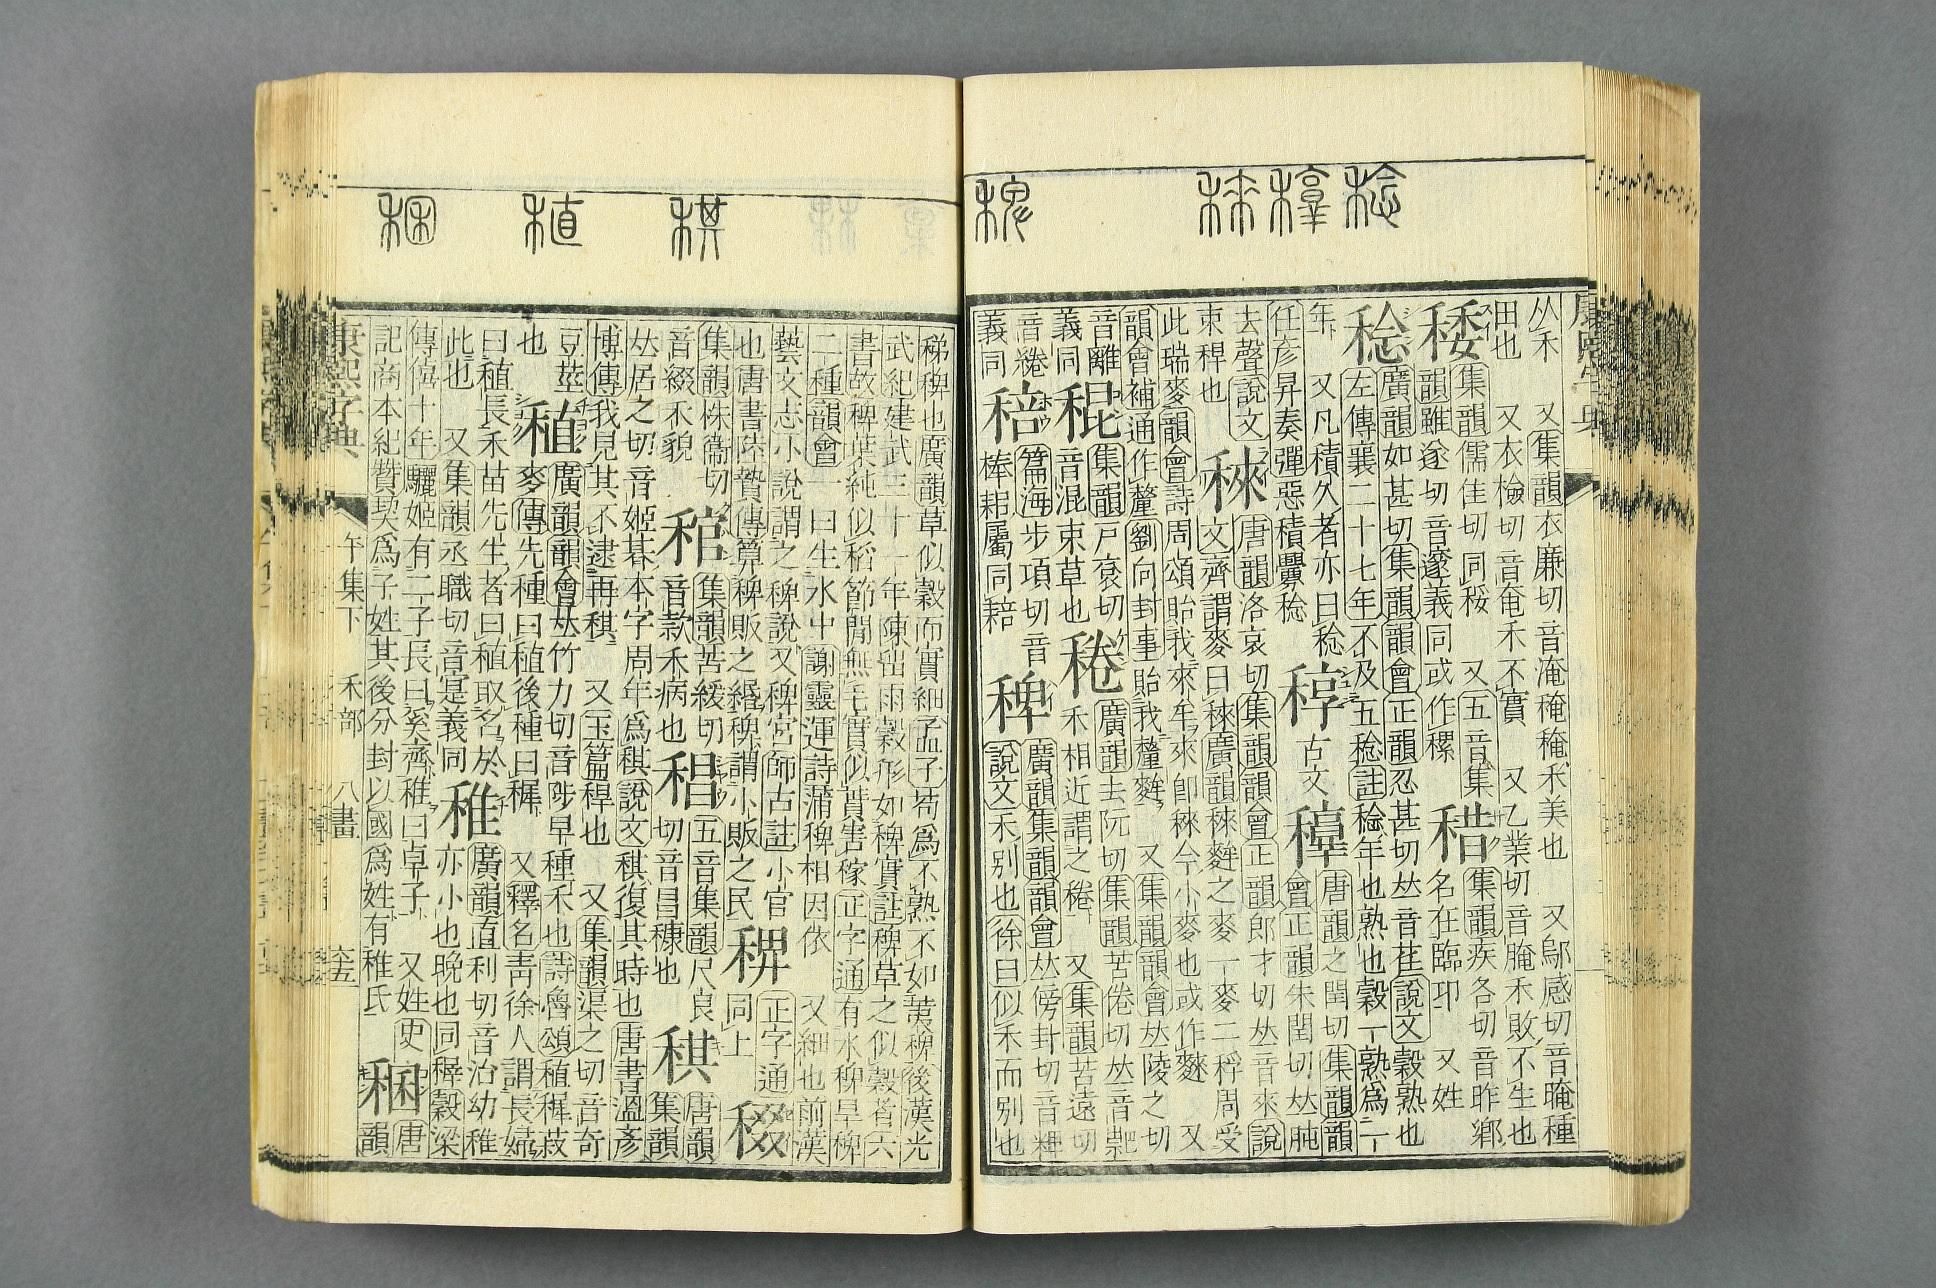 稔
稘
稙
稛
𠀤禾　又集韻衣廉切音淹
禾美也　又鄔感切音晻種
田也　又衣檢切音奄禾不實　又乙業切音腌禾敗不生也
集韻儒佳切同桵　又五音集
韻雖遂切音邃義同或作
集韻疾各切音昨鄉
名在臨邛　又姓
稔
廣韻如甚切集韻韻會正韻忍甚切𠀤音荏說文穀熟也
左傳襄二十七年不及五稔註稔年也熟也穀一熟爲一
年　又凡積久者亦曰稔
任彦昇奏彈惡積釁稔
稕
古文
唐韻之閏切集韻韻
會正韻朱閏切𠀤肫
去聲說文
束稈也
䅘
唐韻洛哀切集韻韻會正韻郎才切𠀤音來說
文齊謂麥曰䅘廣韻䅘麰之麥一麥二稃周受
此瑞麥韻會詩周頌貽我來牟來卽䅘今小麥也或作䴭　又
韻會補通作釐劉向封事貽我釐麰　又集韻韻會𠀤陵之切
音離
義同
集韻戸衮切
音混束草也
廣韻去阮切集韻苦倦切𠀤音
禾相近謂之　又集韻苦遠切
音綣
義同
稖
篇海步項切音
棒耜屬同
稗
廣韻集韻韻會𠀤傍封切音粺
說文禾别也徐曰似禾而别也
稊稗也廣韻草似穀而實細孟子苟爲不熟不如荑稗後漢光
武紀建武三十一年陳留雨穀形如稗實註稗草之似穀者六
書故稗葉純似稻節閒無毛實似害稼正字通有水稗旱稗
二種韻會一曰生水中謝靈運詩蒲稗相因依　又細也前漢
藝文志小說謂之稗說又稗官師古註小官
也唐書陸贄傳算稗販之緡稗謂小販之民
正字通
同上
集韻株衞切
音綴禾貌
集韻苦緩切
音款禾病也
五音集韻尺良
切音昌穅也
稘
唐韻
集韻
𠀤居之切音姬棊本字周年爲稘說文稘復其時也唐書溫彦
博傳我見其不逮再稘　又玉篇稈也　又集韻渠之切音奇
豆莖
也
稙
廣韻韻會𠀤竹力切音陟早種禾也詩魯頌稙穉菽
麥傳先種曰稙後種曰穉　又釋名青徐人謂長婦
曰稙長禾苗先生者曰稙取名於
此也　又集韻丞職切音寔義同
稚
廣韻直利切音治幼稚
亦小也晚也同穉穀梁
傳僖十年驪姬有二子長曰奚齊稚曰卓子　又姓史
記商本紀贊契爲子姓其後分封以國爲姓有稚氏
稛
唐
韻
康熙字典
午集下
禾部
八畫